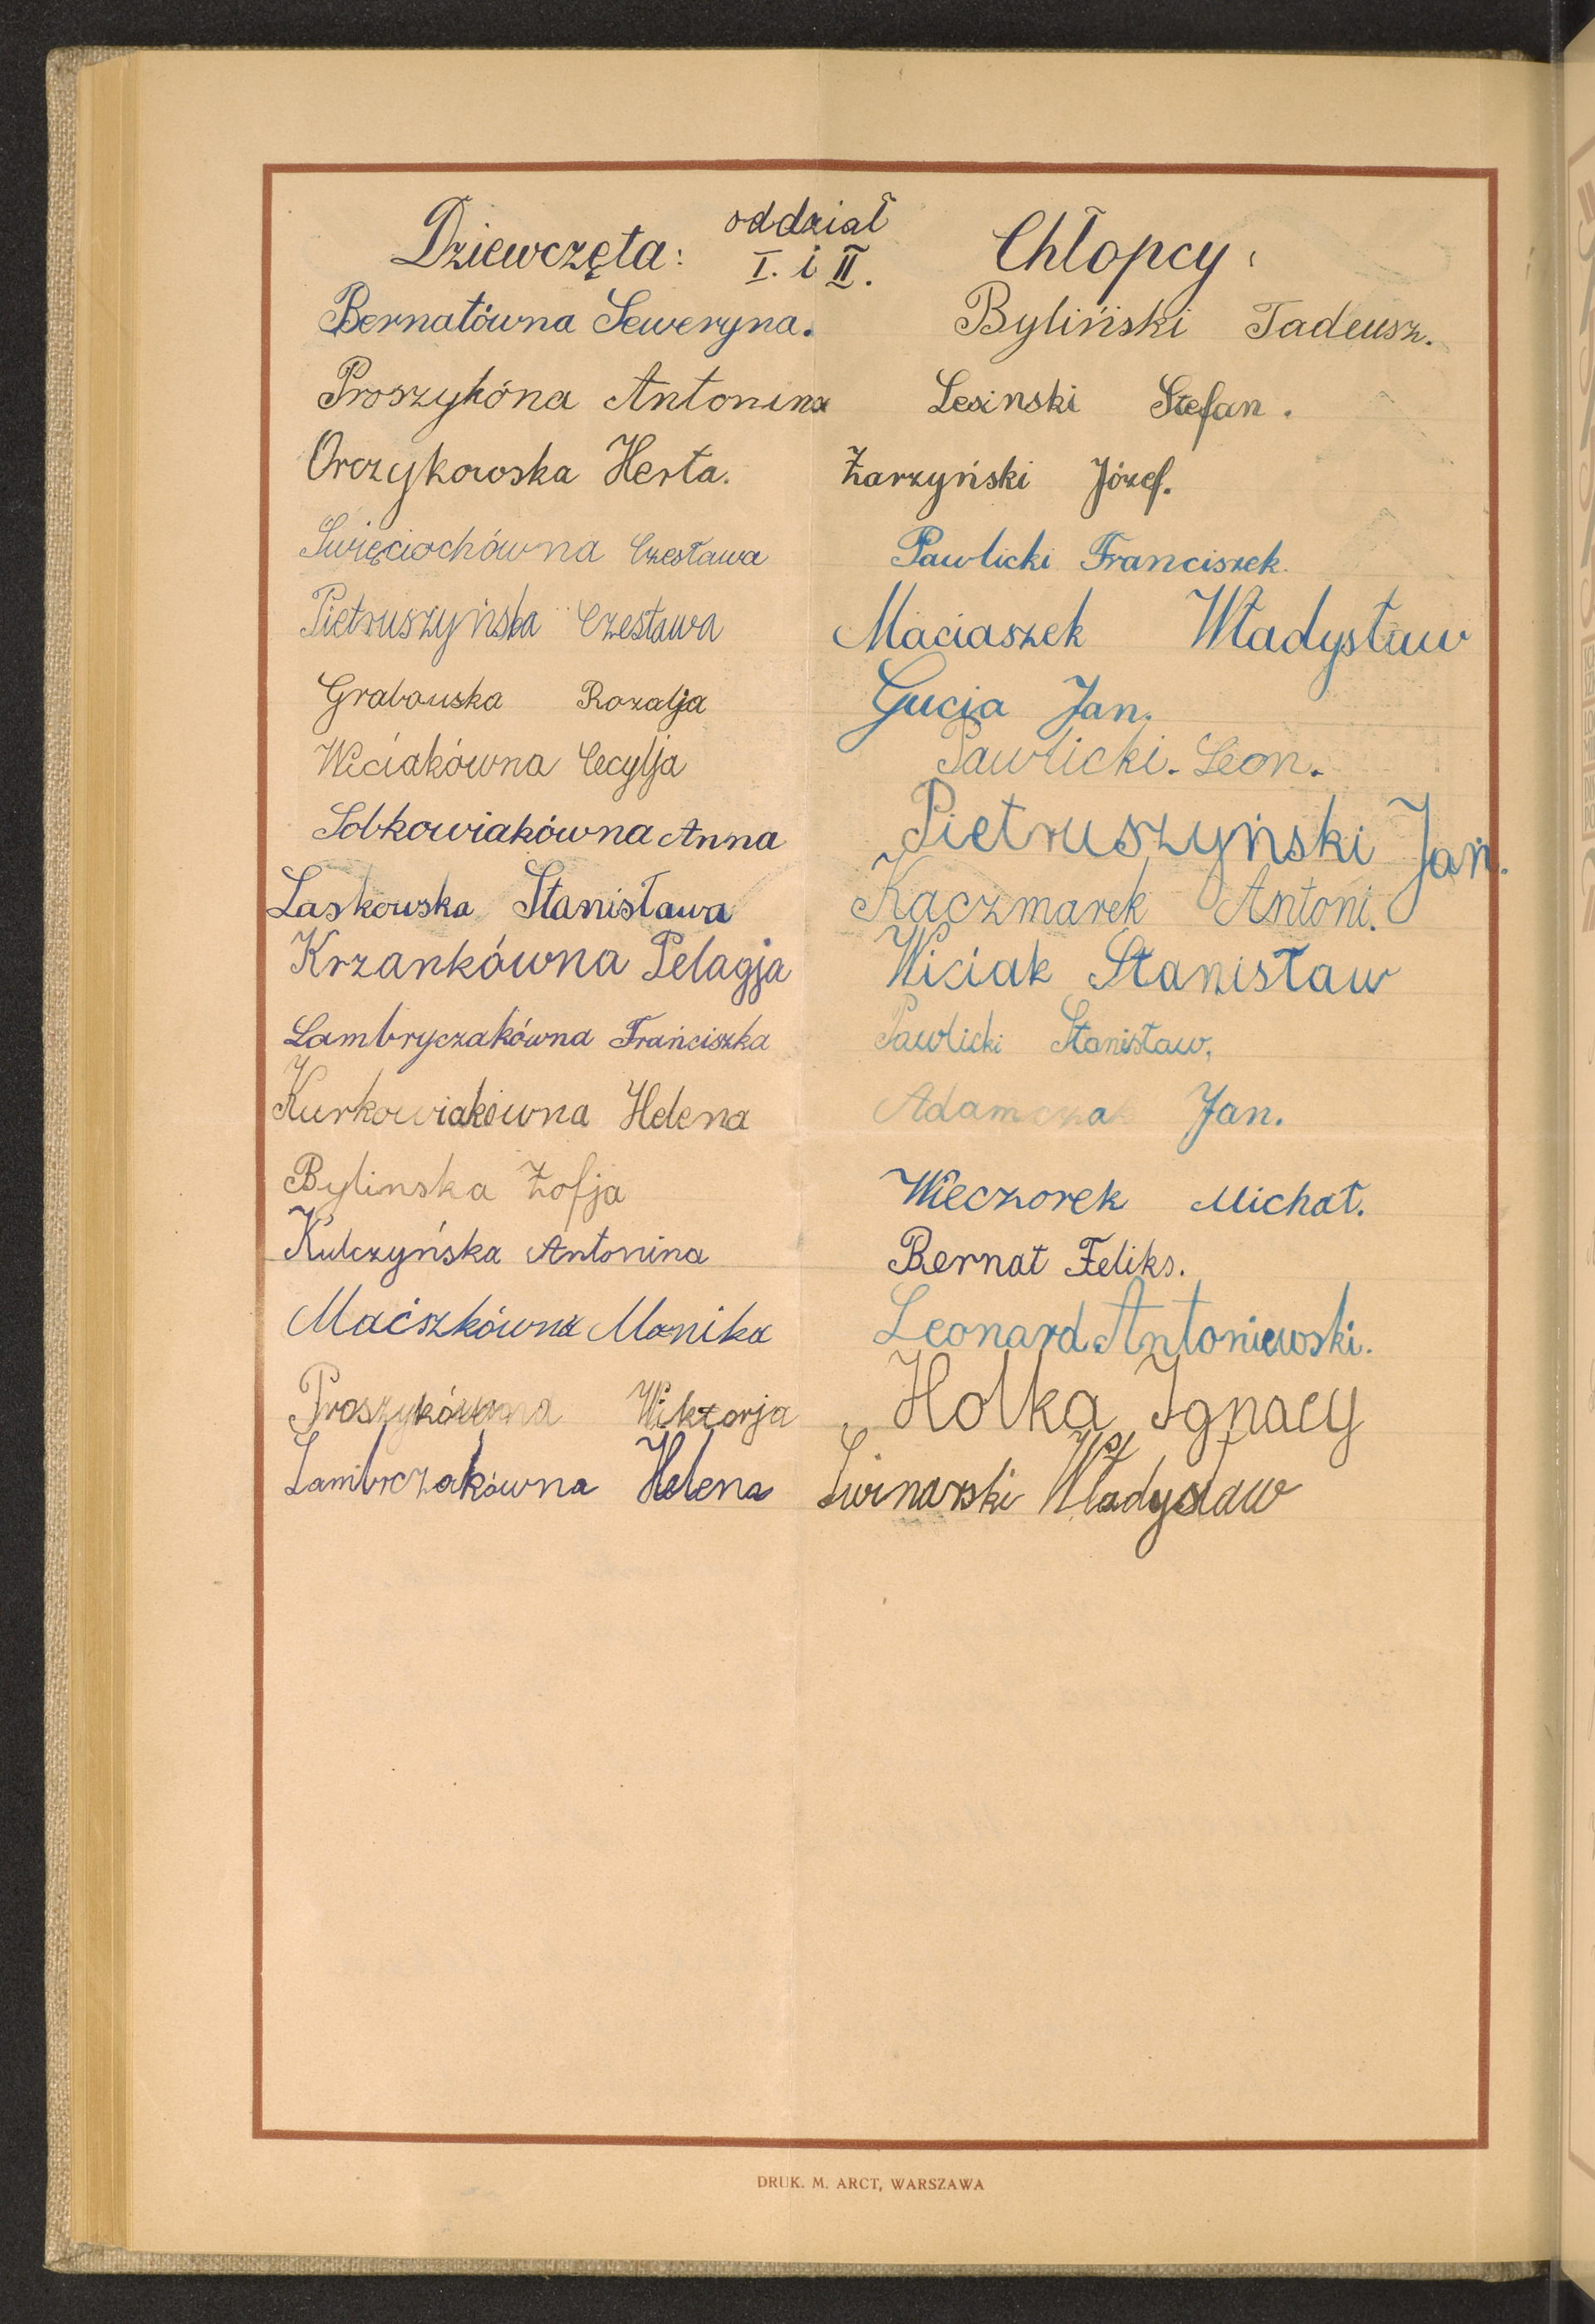 Dziewczęta: oddział I. i II. Chłopcy:
Bernatówna Seweryna.
Proszykóna Antonina
Orczykowska Herta.
Święciochówna Czesława
Pietruszyńska Czesława
Grabowska Rozalja
Wiciakówna Cecylja
Sobkowiakówna Anna
Laskowska Stanisława
Krzankówna Pelagja
Lambryczakówna Franciszka
Kurkowiakówna Helena
Bylinska Zofja
Kulczyńska Antonina
Maćszkówna Monika
Proszykówna Wiktorja
Lambrczakówna Helena
Byliński Tadeusz.
Lesinski Stefan.
Żarzyński Józef.
Pawlicki Franciszek.
Maciaszek Władysław
Gucia Jan.
Pawlicki. Leon.
Pietruszyński Jan.
Kaczmarek Antoni.
Wiciak Stanisław
Pawlicki Stanisław.
Adamczak Jan.
Wieczorek Michał.
Bernat Feliks.
Leonard Antoniewski.
Holka Ignacy
Świnarski Władysław
DRUK. M. ARCT, WARSZAWA